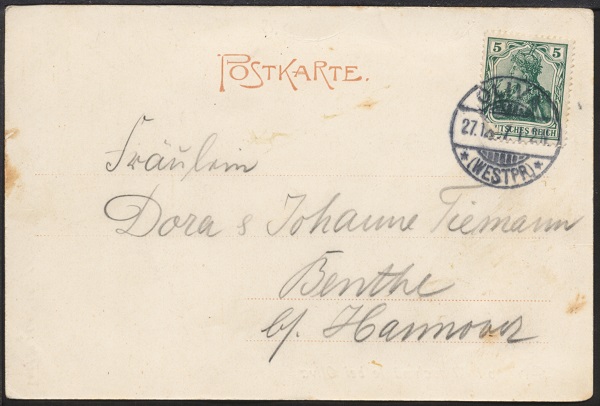 POSTKARTE.
5 5
DEUTSCHES REICH
27.12.
*(WESTPR)*
Fräulein
Dora & Johanne Tiemann
Benthe
b/. Hannover